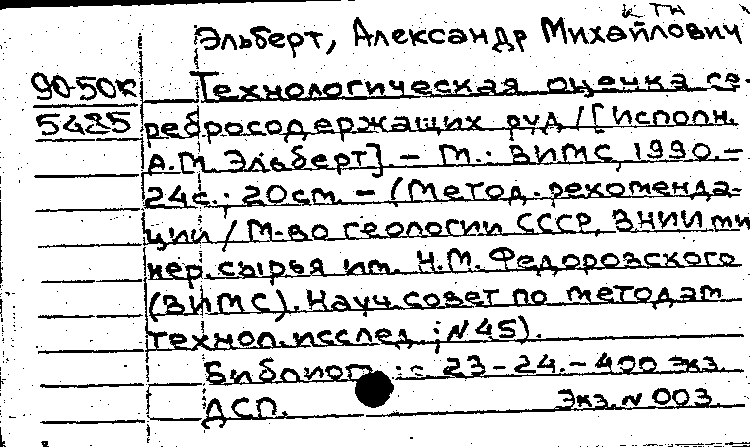 К Т Н
Эльберт, Александр Михайлович
90-50к Технологическая оценка се-
5485 ребросодержащих руд / [Исполн.
А.М. Эльберт] . – М.: ВИМС, 1990. –
24с.; 20см. – (Метод. рекоменда-
ции / М-во геологии СССР, ВНИИ ми
нер. сырья им. Н.М. Федоровского
(ВИМС). Науч. совет по методам
технол. исслед.; N 45).
Библиогр.: с 23-24. – 400 экз.
ДСП. Экз. N 003.